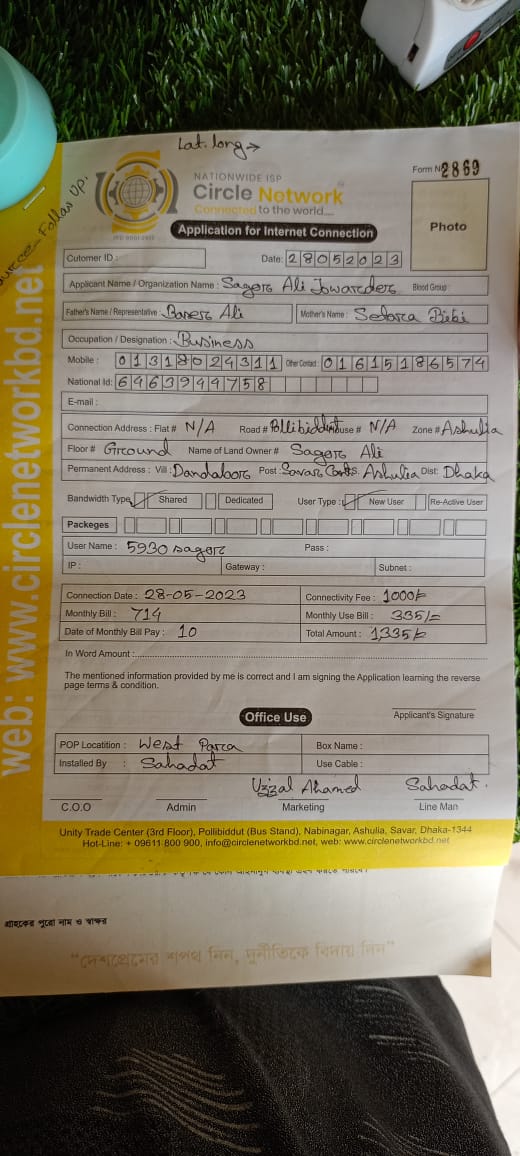 Lat. long →
Source - Follow Up.
NATIONWIDE ISP
Circle Network
Connected to the world....
ISO 9001:2015
Form N 2869
Photo
Application for Internet Connection
Cutomer ID :
Date: 28052023
Applicant Name / Organization Name : Sagor Ali Jowarder Blood Group
Father's Name / Representative : Ali Mother's Name : Bibi
Occupation / Designation : Business
Mobile : 01318024311 Other Contact : 01615186574
National Id: 6463944758
E-mail :
Connection Address : Flat# N/A Road # Pollibiddut House # N/A Zone # Ashulia
Floor # Ground Name of Land Owner # Sagor Ali
Permanent Address : Vill: Dandabor Post : Savar Cantt. Ashulia Dist: Dhaka
Bandwidth Type Shared Dedicated User Type : New User Re-Active User
Packeges
User Name : 5930 sagor Pass :
IP : Gateway : Subnet :
Connection Date : 28-05-2023 Connectivity Fee : 1000/-
Monthly Bill : 714 Monthly Use Bill : 335/=
Date of Monthly Bill Pay : 10 Total Amount : 1,335/-
In Word Amount :
The mentioned information provided by me is correct and I am signing the Application learning the reverse
page terms & condition.
Applicant's Signature
Office Use
POP Locatition : West Para Box Name :
Installed By : Sahadat Use Cable :
Uzzal Ahamed Sahadat.
C.O.O Admin Marketing Line Man
Unity Trade Center (3rd Floor), Pollibiddut (Bus Stand), Nabinagar, Ashulia, Savar, Dhaka-1344
Hot-Line: + 09611 800 900, info@circlenetworkbd.net, web: www.circlenetworkbd.net
web: www.circlenetworkbd.net
গ্রাহকের পুরো নাম ও স্বাক্ষর
"দেশপ্রেমের শপথ নিন, দুর্নীতিকে বিদায় নিন"